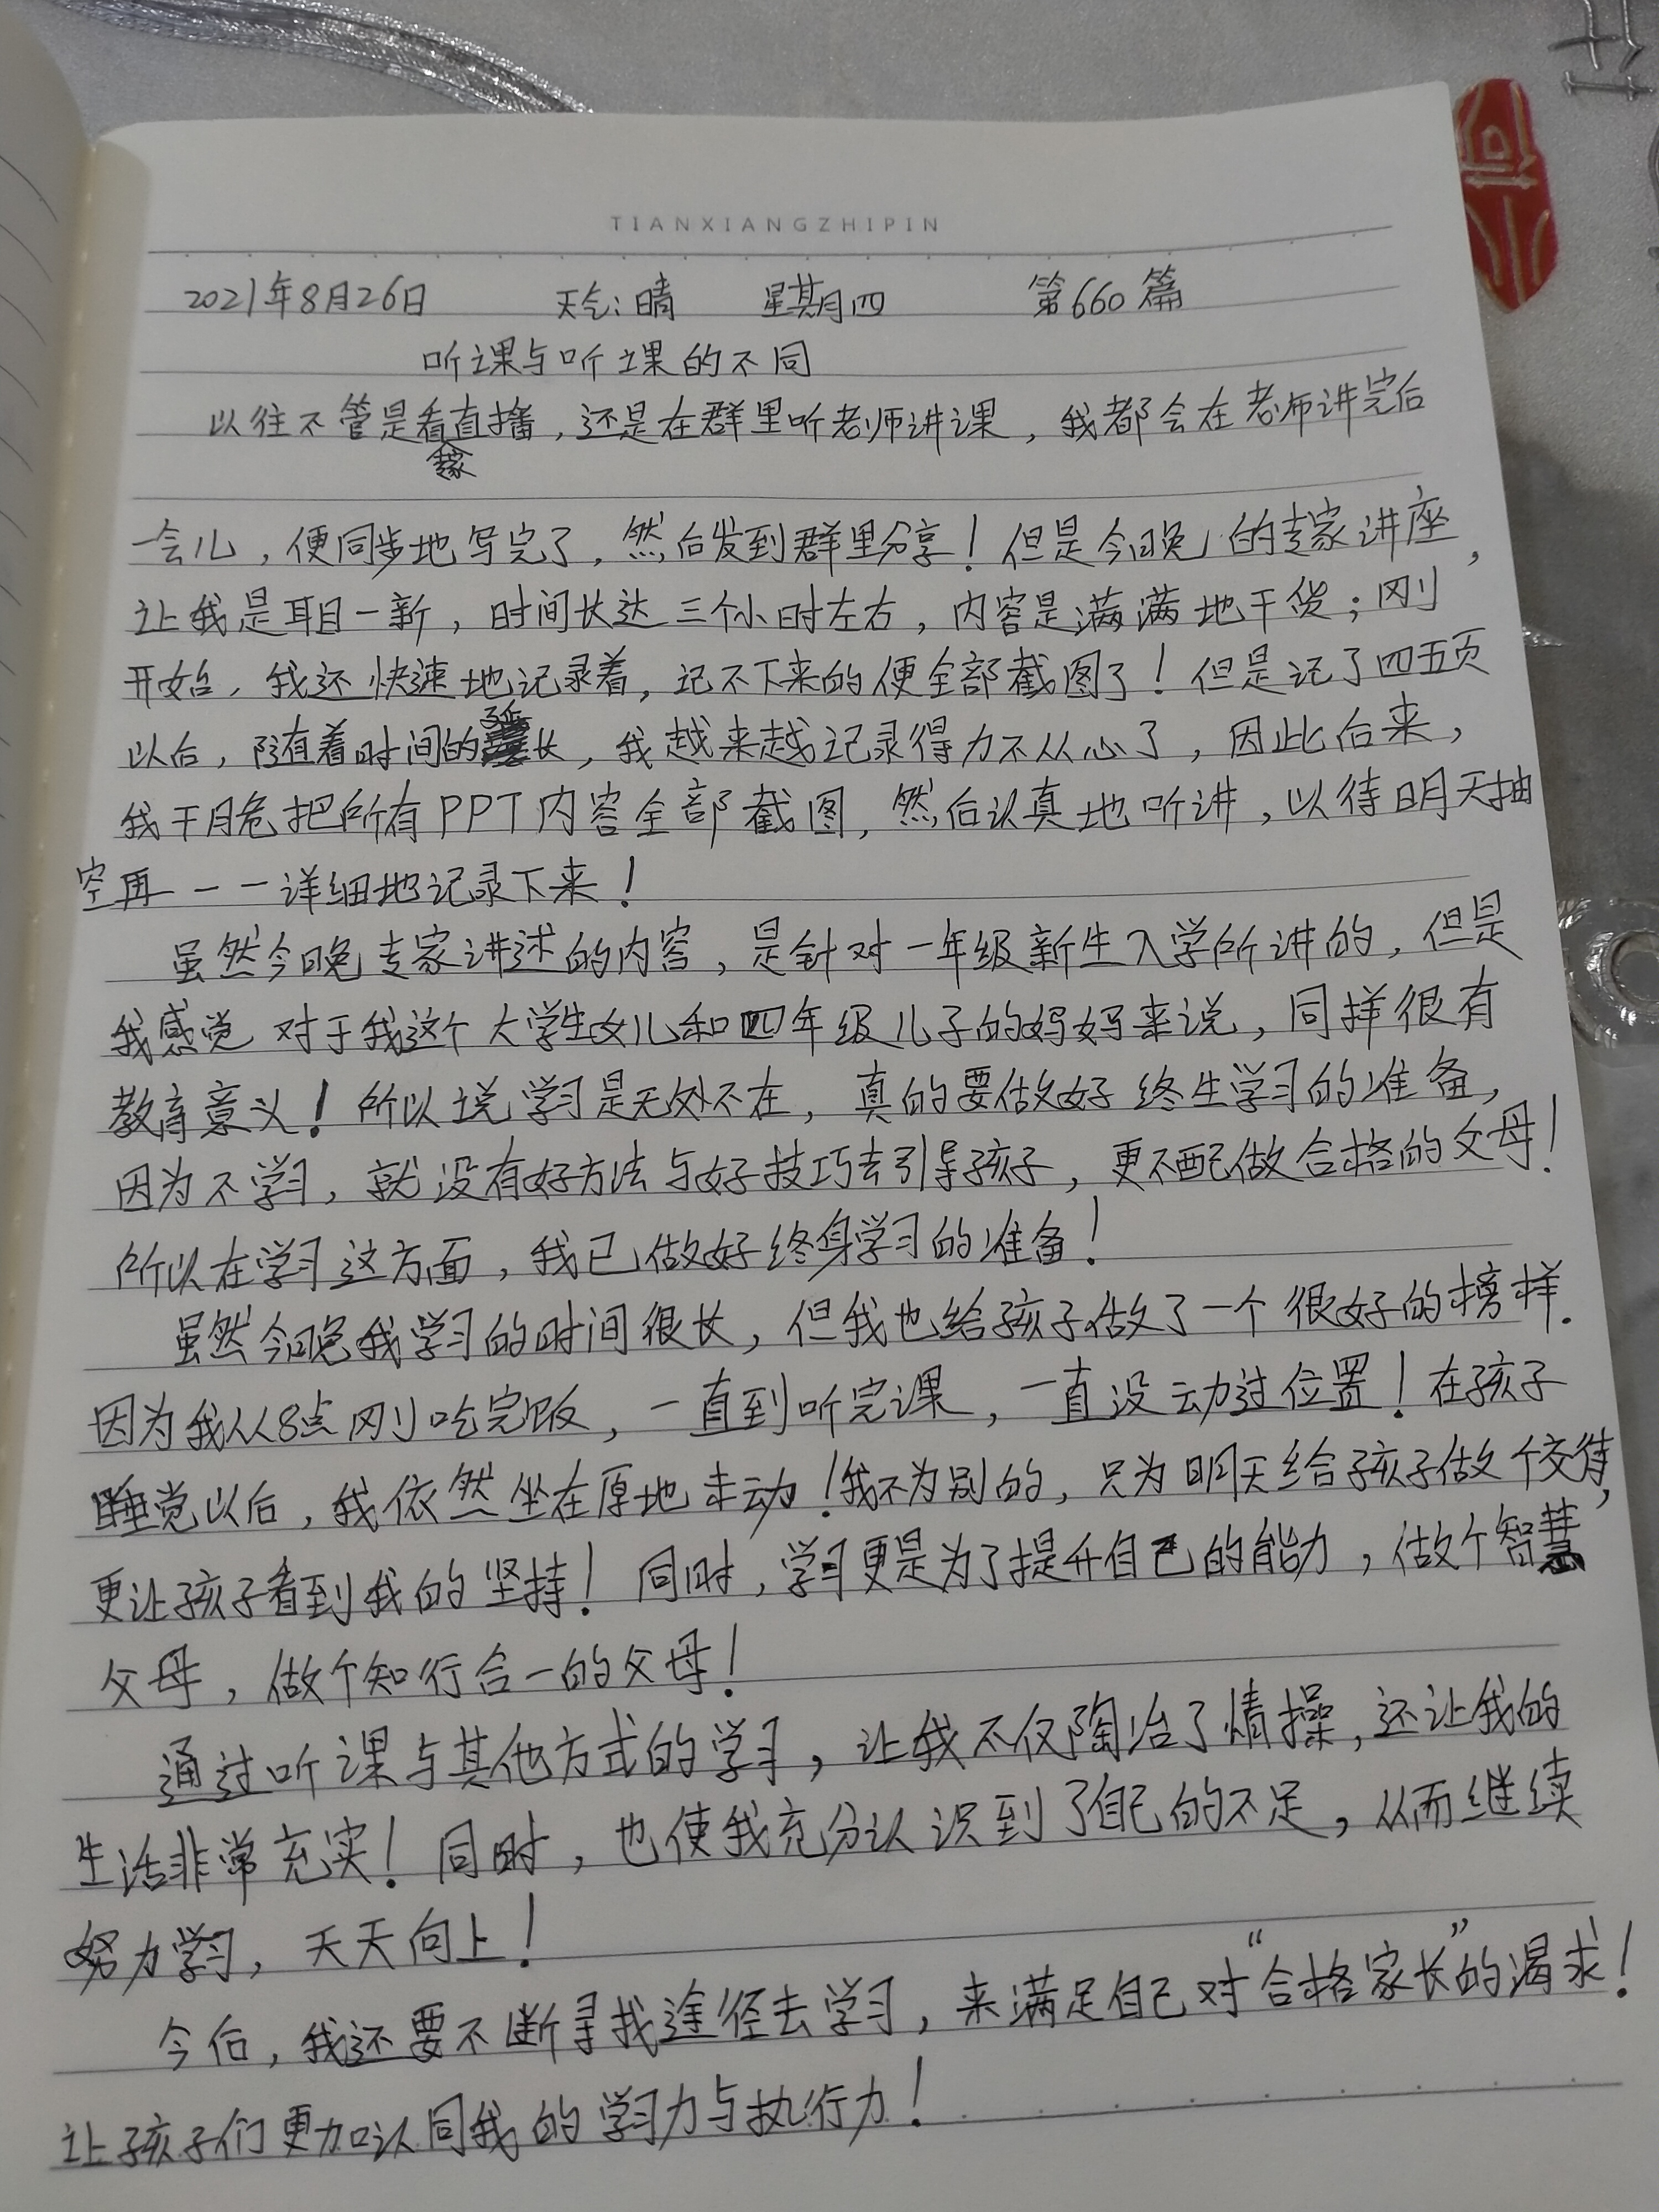 TIANXIANGZHIPIN
2021年8月26日 天气:晴 星期四 第660篇
听课与听课的不同
以往不管是看直播,还是在群里听老师讲课,我都会在老师讲完后
一会儿,便同步地写完了,然后发到群里分享!但是今晚的专家讲座,
让我是耳目一新,时间长达三个小时左右,内容是满满地干货;刚
开始,我还快速地记录着,记不下来的便全部截图了!但是记了四五页
以后,随着时间的延长,我越来越记录得力不从心了,因此后来,
我干脆把所有PPT内容全部截图,然后认真地听讲,以待明天抽
空再一一详细地记录下来!
虽然今晚专家讲述的内容,是针对一年级新生入学所讲的,但是
我感觉对于我这个大学生女儿和四年级儿子的妈妈来说,同样很有
教育意义!所以说学习是无处不在,真的要做好终生学习的准备,
因为不学习,就没有好方法与好技巧去引导孩子,更不配做合格的父母!
所以在学习这方面,我已做好终身学习的准备!
虽然今晚我学习的时间很长,但我也给孩子做了一个很好的榜样.
因为我从8点刚吃完饭,一直到听完课,一直没动过位置!在孩子
睡觉以后,我依然坐在原地未动!我不为别的,只为明天给孩子做个交待,
更让孩子看到我的坚持!同时,学习更是为了提升自己的能力,做个智慧
父母,做个知行合一的父母!
通过听课与其他方式的学习,让我不仅陶冶了情操,还让我的
生活非常充实!同时,也使我充分认识到了自己的不足,从而继续
努力学习,天天向上!
今后,我还要不断寻找途径去学习,来满足自己对“合格家长”的渴求!
让孩子们更加认同我的学习力与执行力!